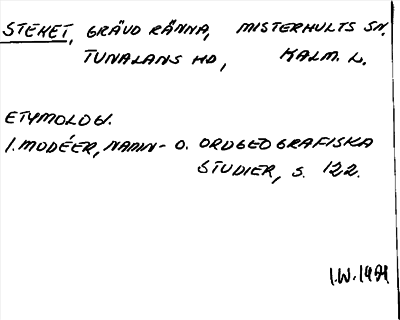 STEKET, GRÄVD RÄNNA, MISTERHULTS SN,
TUNALÄNS HD, KALM. L.
ETYMOLOGI.
I. MODÉER, NAMN- O. ORDGEOGRAFISKA
STUDIER, S. 122.